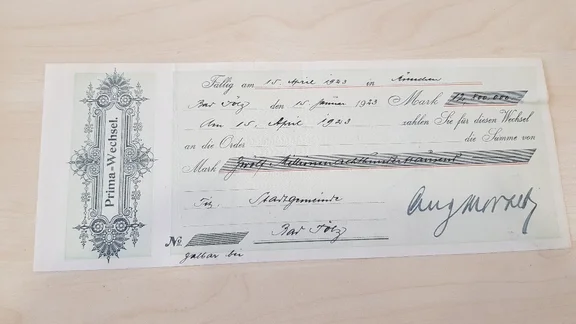 Prima-Wechsel.
Fällig am 15. April 1923 in München
Bad Tölz den 15. Januar 1923 Mark 12.800.000.-
Am 15. April 1923 zahlen Sie für diesen Wechsel
an die Order die Summe von
Mark Zwölf Millionenachthunderttausend
Stadtgemeinde
Bad Tölz
No.
zahlbar bei